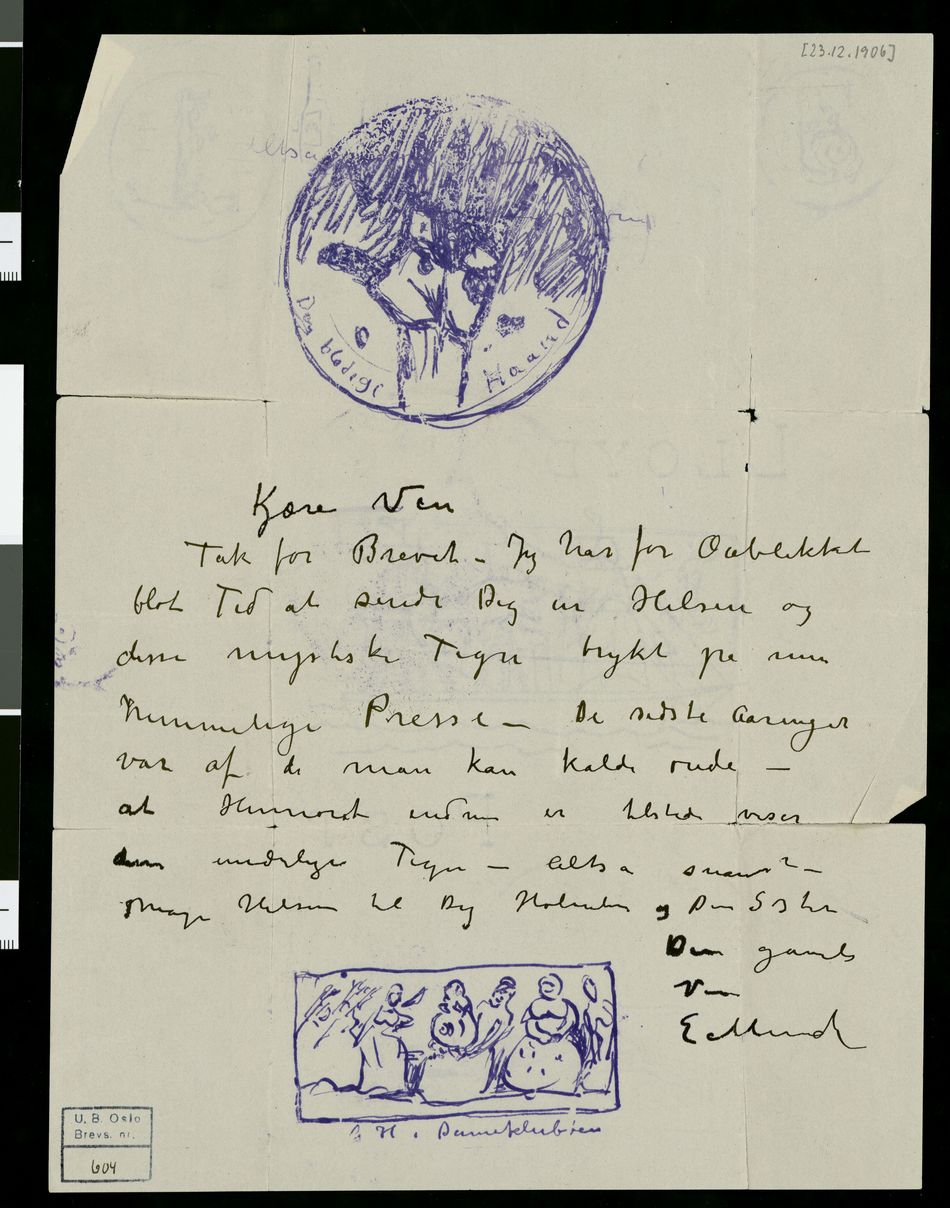 [23.12.1906]
Den blodige Haand
Kjære Ven
Tak for Brevet – Jeg har for Øieblikket
blot Tid at sende Dig en Hilsen og
disse mystiske Tegn trykt på min
hemmelige Presse – De sidste Aaringer
var af de man kan kalde onde –
at Humoret endnu er tilstede viser
underlige Tegn – altså snart? –
mange Hilsen til Dig Holmboe og Din Søster
Din gamle
Ven
E Munch
H i Dameklubben
U. B. Oslo
Brevs. nr.
604